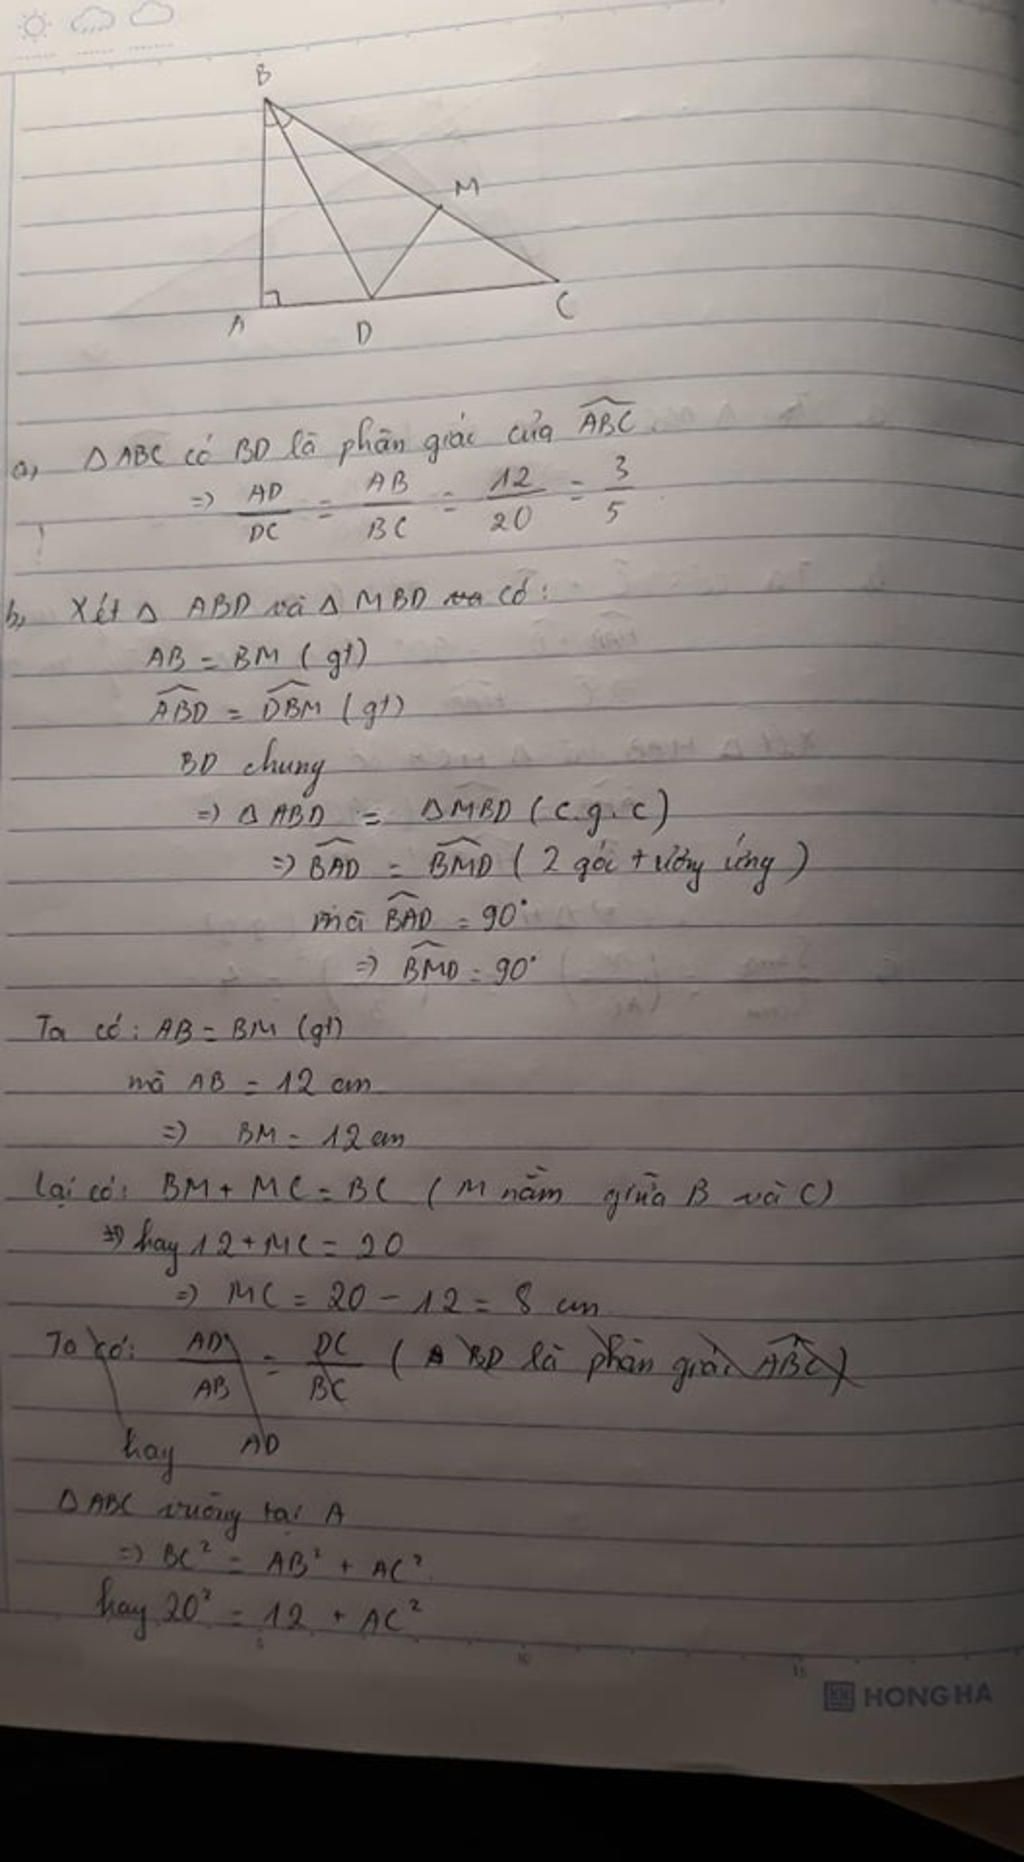 B
M
A
D
C
a, Δ ABC có BD là phân giác của ABC
=> AD/DC = AB/BC = 12/20 = 3/5
b, Xét Δ ABD và Δ MBD có:
AB = BM (gt)
ABD = DBM (gt)
BD chung
=> Δ ABD = Δ MBD (c.g.c)
=> BAD = BMD (2 góc tương ứng)
mà BAD = 90°
=> BMD = 90°
Ta có: AB = BM (gt)
mà AB = 12 cm
=> BM = 12 cm
lại có: BM + MC = BC (M nằm giữa B và C)
hay 12 + MC = 20
=> MC = 20 - 12 = 8 cm
Ta có: AD/AB = DC/BC ( BD là phân giác ABC)
hay AD
Δ ABC vuông tại A
=> BC² = AB² + AC²
hay 20² = 12 + AC²
5
10
15
HONG HA